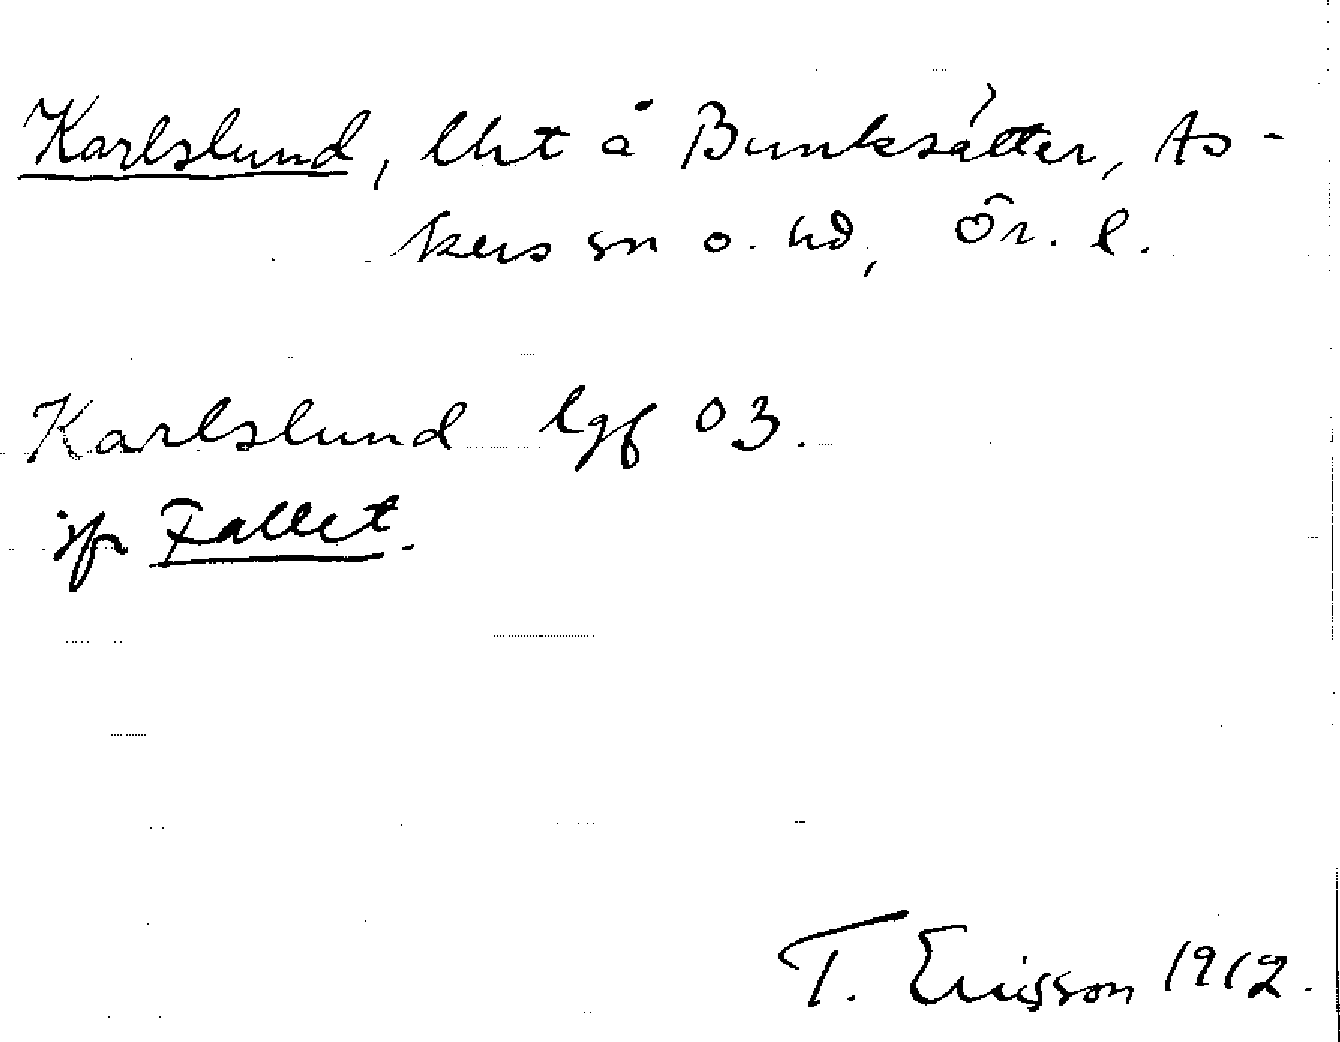 Karlslund, lht å Bunksätter, As-
kers sn o. hd, Ör. l.
Karlslund lgf 03.
jfr Fallet.
T. Ericsson 1912.